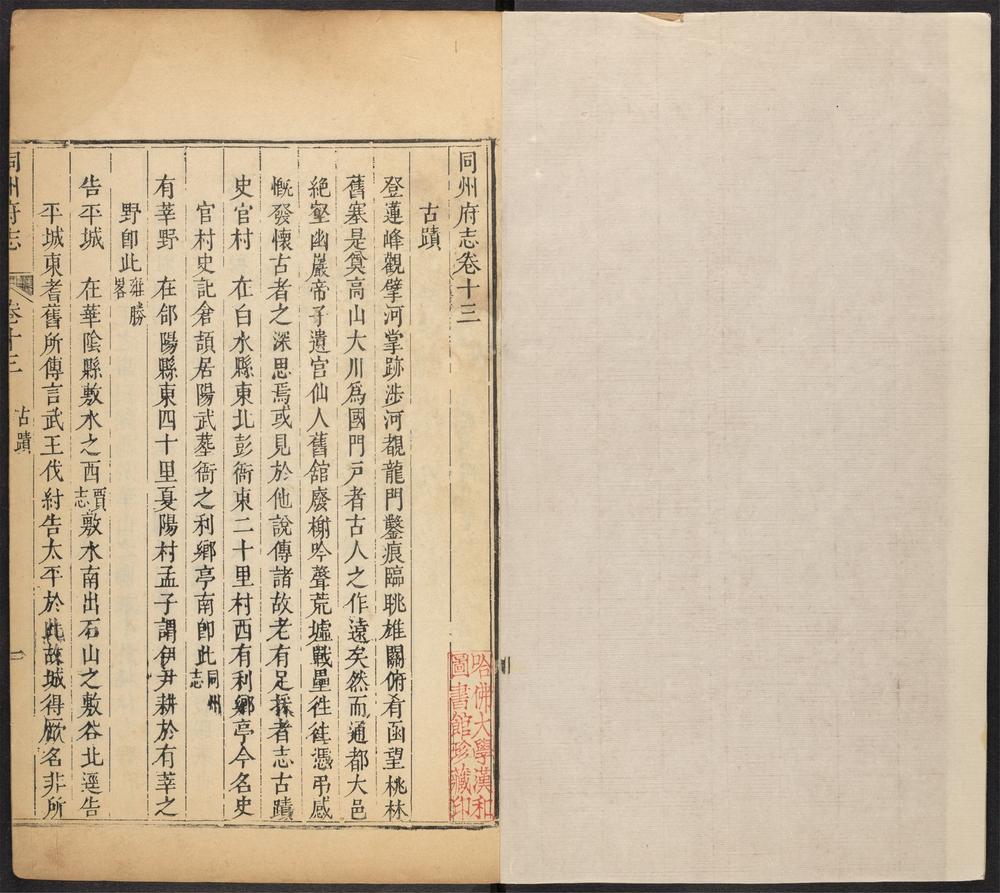 同州府志卷十三
古蹟
登蓮峰觀擘河掌跡涉河覩龍門鑿痕臨眺雄關俯肴函望桃林
舊塞是奠高山大川爲國門戸者古人之作遠矣然而通都大邑
絶壑幽巖帝子遺宫仙人舊舘廢榭吟聲荒墟戰壘徃徃憑弔感
慨發懷古者之深思焉或見於他說傳諸故老有足採者志古蹟
史官村 在白水縣東北彭衙東二十里村西有利鄉亭今名史
官村史記倉頡居陽武葬衙之利鄉亭南卽此同州志
有莘野 在郃陽縣東四十里夏陽村孟子謂伊尹耕於有莘之
野卽此雍勝畧
告平城 在華陰縣敷水之西賈志敷水南出石山之敷谷北逕告
平城東耆舊所傳言武王伐紂告太平於此故城得厥名非所
同州府志
卷十三
古蹟
一
哈佛大學漢和
圖書館珍藏印